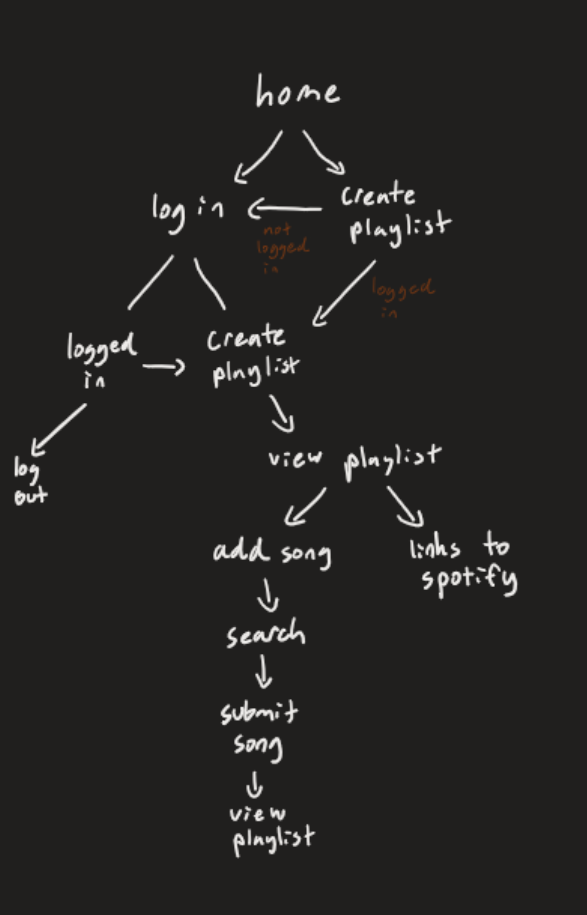 home
log in
create
playlist
not
logged
in
logged
in
logged
in
create
playlist
log
out
view playlist
add song
links to
spotify
search
submit
song
view
playlist